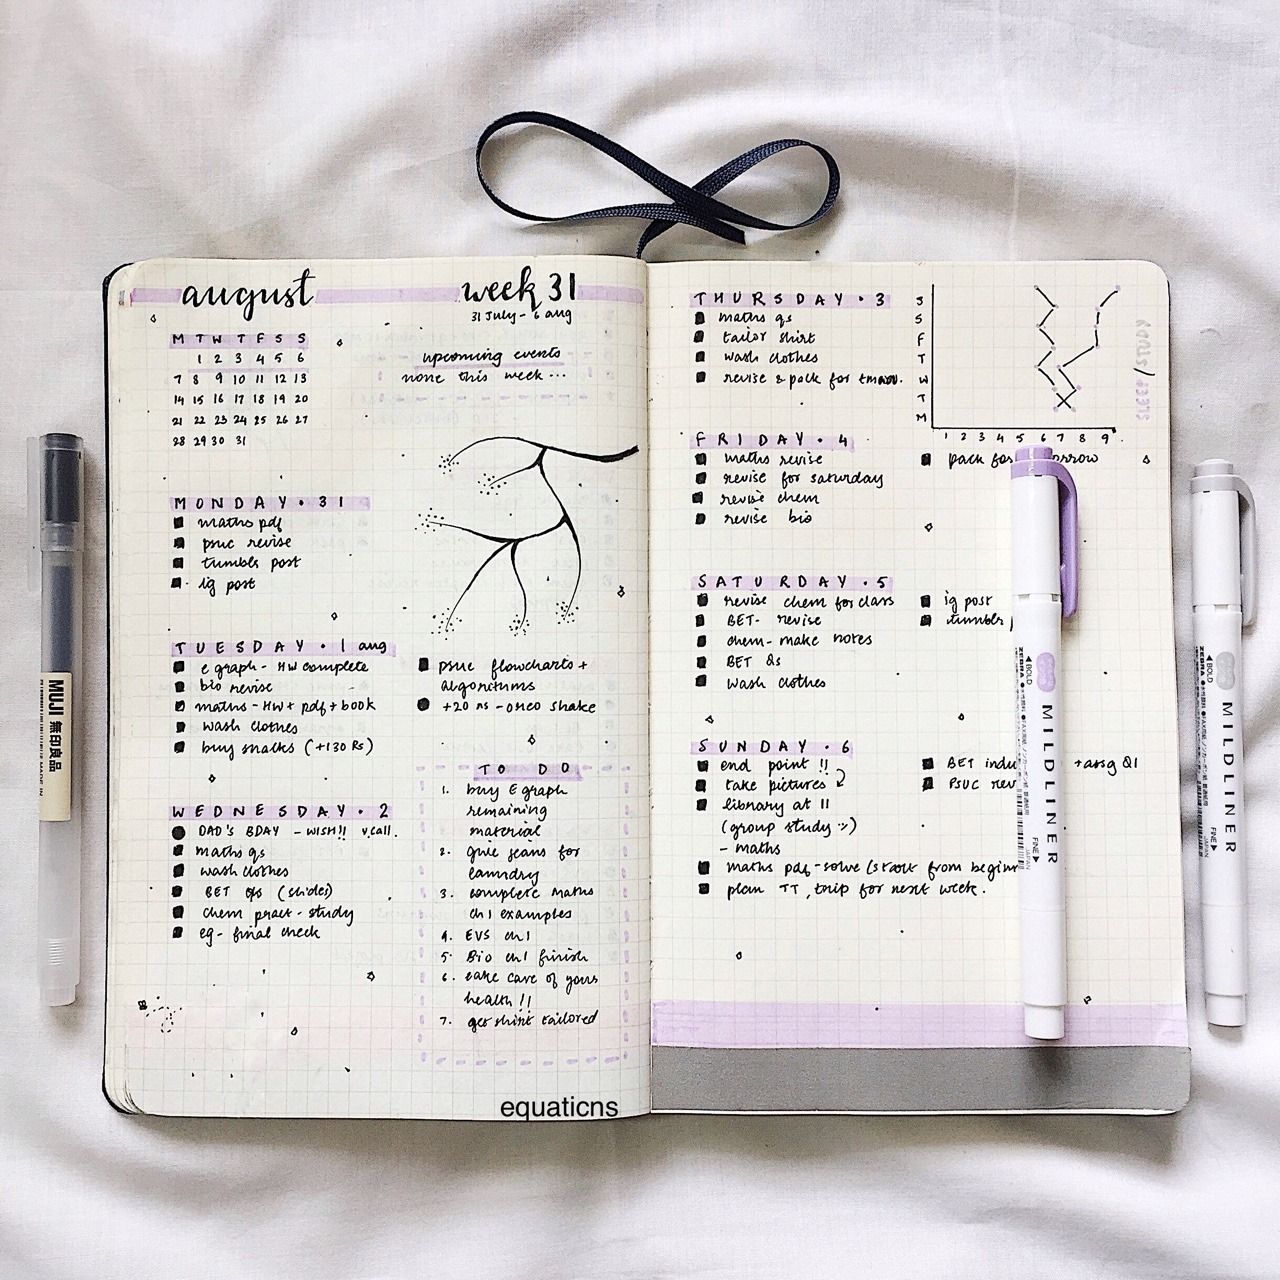 august
week 31
31 July - 6 aug
M T W T F S S
1 2 3 4 5 6
7 8 9 10 11 12 13
14 15 16 17 18 19 20
21 22 23 24 25 26 27
28 29 30 31
upcoming events
none this week...
MONDAY • 31
maths pdf
psuc revise
tumblr post
ig post
TUESDAY • 1 aug
e graph - HW complete
bio revise
maths - HW + pdf + book
wash clothes
buy snacks (+130 Rs)
psuc flowcharts +
algorithms
+20 rs - oreo shake
WEDNESDAY • 2
DAD'S BDAY - WISH!! v.call.
maths qs
wash clothes
BET qs (slides)
chem pract - study
eg - final check
TO DO
1. buy E graph
remaining
material
2. give jeans for
laundry
3. complete maths
ch 1 examples
4. EVS ch1
5. Bio ch1 finish
6. take care of your
health!!
7. get shirt tailored
THURSDAY • 3
maths qs
tailor shirt
wash clothes
revise & pack for tmrw.
S
S
F
T
W
T
M
1 2 3 4 5 6 7 8 9
SLEEP / STUDY
FRIDAY • 4
maths revise
revise for saturday
revise chem
revise bio
pack for
SATURDAY • 5
revise chem for class
BET - revise
chem - make notes
BET Qs
wash clothes
ig post
tumblr
SUNDAY • 6
end point !!
take pictures
library at 11
(group study :))
- maths
maths pdf - solve (start from
plan TT, trip for next week.
BET
+ assg Q1
PSUC
MUJI 無印良品
BOLD
ZEBRA
MILDLINER
FINE
JAPAN
BOLD
ZEBRA
MILDLINER
FINE
JAPAN
equaticns